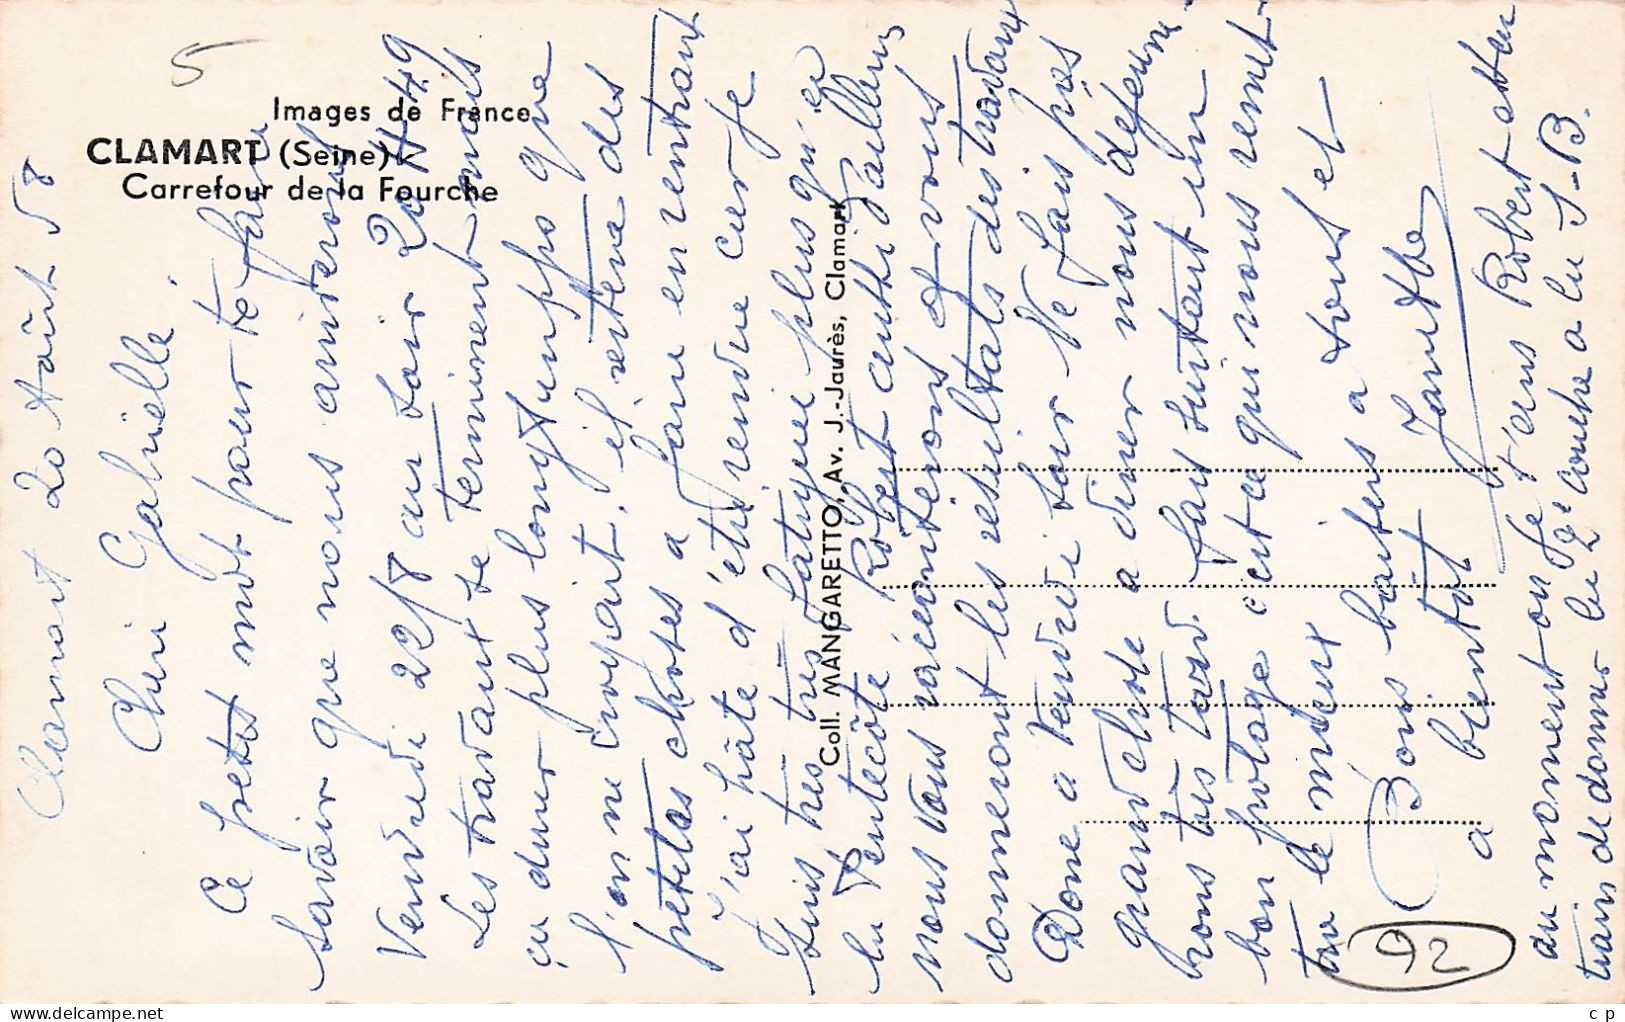 5
Images de France
CLAMART (Seine)
Carrefour de la Fourche
Coll. MANGARETTO, Av. J.-Jaurès, Clamart
Clamart 20 Août 58
Cheri Gabrielle
Ce petit mot pour te faire
savoir que nous arriverons
Vendredi 22/8 au soir 20 H 49
Les travaux se terminent mais
ça durer plus longtemps que
l'on ne croyait, il restera des
petites choses a faire en rentrant
J'ai hâte d'être rendue car je
suis très très fatiguée plus qu'a
la Pentecôte Robert aussi d'ailleurs
nous vous raconterons et vous
donnerons les résultats des travaux
Donc a Vendredi soir Ne fais pas
grand chose a diner nous déjeune-
rons très tard. fais surtout un
bon potage c'est ce qui nous remet-
tra le mieux
Bons baisers a tous et
a bientôt
au moment ou je t'ecris Robert est en
train de donner la 2e couche a la S-B.
92
Veuillez
c p